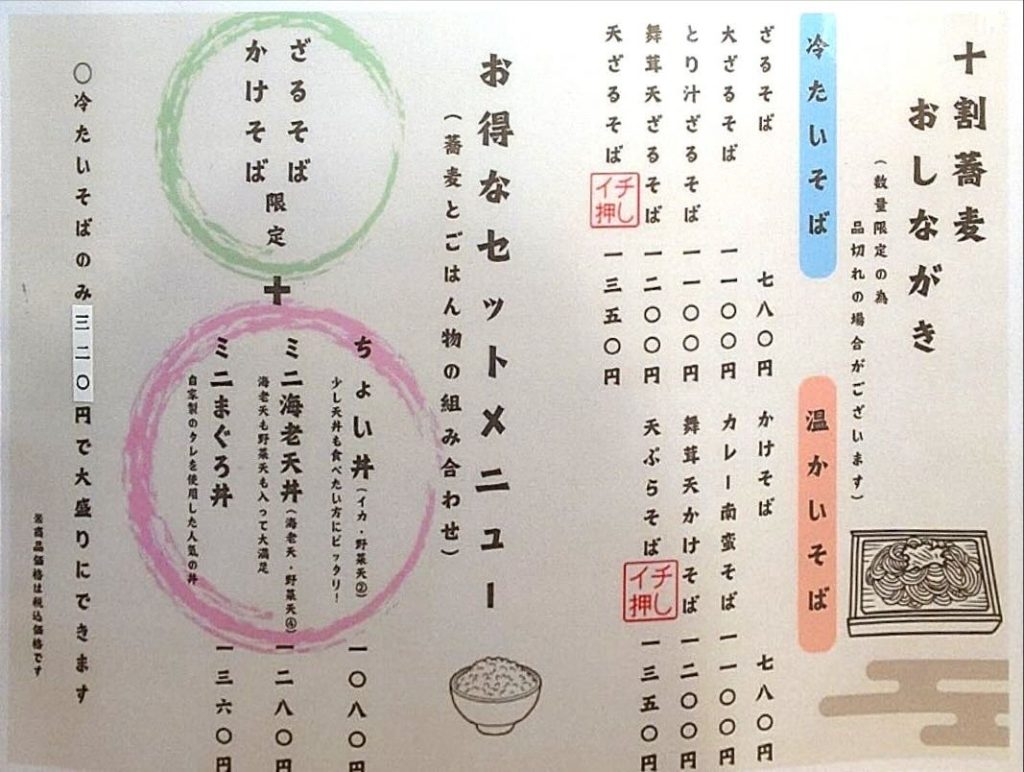 十割蕎麦
おしながき
（数量限定の為
品切れの場合がございます）
冷たいそば
ざるそば 七八〇円
大ざるそば 一一〇〇円
とり汁ざるそば 一一〇〇円
舞茸天ざるそば 一二〇〇円
天ざるそば イチ押し 一三五〇円
温かいそば
かけそば 七八〇円
カレー南蛮そば 一一〇〇円
舞茸天かけそば 一二〇〇円
天ぷらそば イチ押し 一三五〇円
お得なセットメニュー
（蕎麦とごはん物の組み合わせ）
ざるそば
かけそば
限定
＋
ちょい丼（イカ・野菜天②） 一〇八〇円
少し天丼も食べたい方にピッタリ！
ミニ海老天丼（海老天・野菜天④） 一二八〇円
海老天も野菜天も入って大満足
ミニまぐろ丼 一三六〇円
自家製のタレを使用した人気の丼
〇冷たいそばのみ三二〇円で大盛りにできます
※商品価格は税込価格です